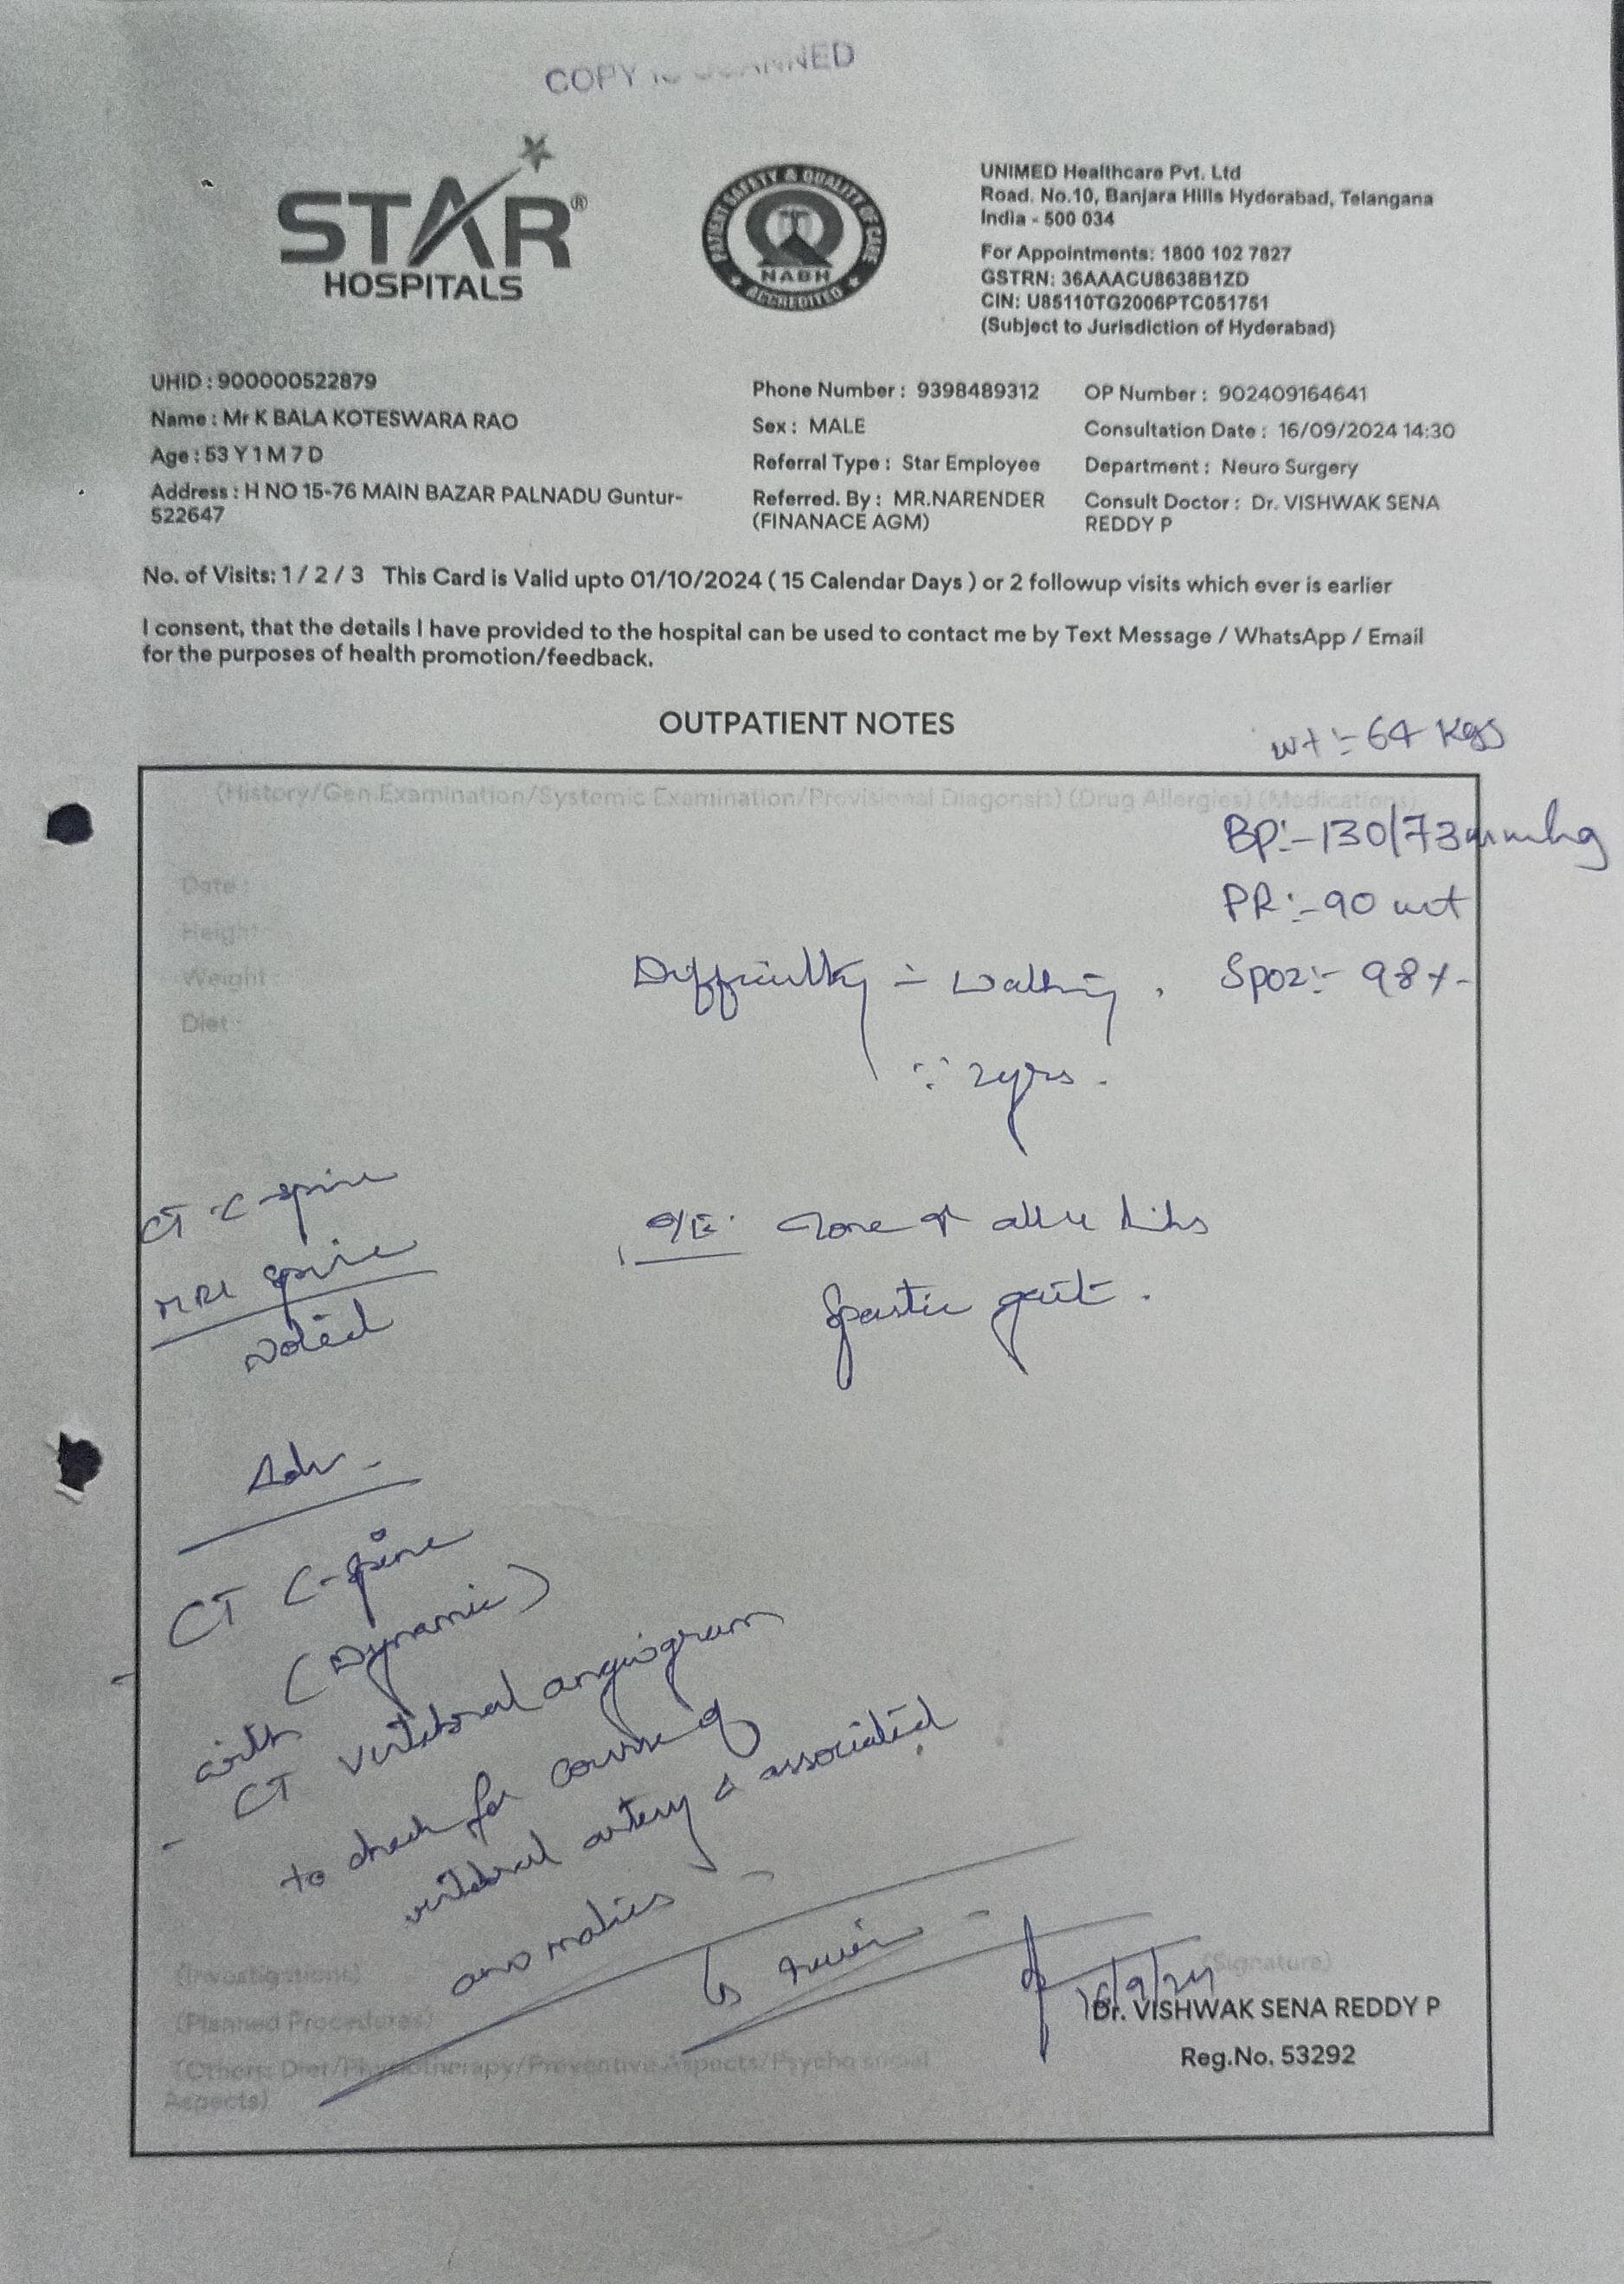 COPY IS SCANNED
STAR®
HOSPITALS
PATIENT SAFETY & QUALITY OF CARE
NABH
ACCREDITED
UNIMED Healthcare Pvt. Ltd
Road. No.10, Banjara Hills Hyderabad, Telangana
India - 500 034
For Appointments: 1800 102 7827
GSTRN: 36AAACU8638B1ZD
CIN: U85110TG2006PTC051751
(Subject to Jurisdiction of Hyderabad)
UHID : 900000522879
Name : Mr K BALA KOTESWARA RAO
Age : 53 Y 1 M 7 D
Address : H NO 15-76 MAIN BAZAR PALNADU Guntur-
522647
Phone Number : 9398489312
Sex : MALE
Referral Type : Star Employee
Referred. By : MR.NARENDER
(FINANACE AGM)
OP Number : 902409164641
Consultation Date : 16/09/2024 14:30
Department : Neuro Surgery
Consult Doctor : Dr. VISHWAK SENA
REDDY P
No. of Visits: 1 / 2 / 3 This Card is Valid upto 01/10/2024 ( 15 Calendar Days ) or 2 followup visits which ever is earlier
I consent, that the details I have provided to the hospital can be used to contact me by Text Message / WhatsApp / Email
for the purposes of health promotion/feedback.
OUTPATIENT NOTES
wt :- 64 Kgs
(History/Gen.Examination/Systemic Examination/Provisional Diagonsis) (Drug Allergies) (Medications)
BP:- 130/73 mmhg
PR:- 90
Spo2:- 98%
Date :
Height
Weight :
Diet :
Difficulty = walking.
∵ 2yrs.
CT C-spine
MRI spine
noted
O/E: Tone ↑ all 4
Spastic gait.
Adv -
- CT C-spine
(Dynamic)
with
- CT vertebral angiogram
to check for course of
vertebral artery & associated
anomalies
review -
16/9/24
(Signature)
Dr. VISHWAK SENA REDDY P
Reg.No. 53292
(Investigations)
(Planned Procedures)
(Others: Diet/Physiotherapy/Preventive Aspects/Psycho social
Aspects)